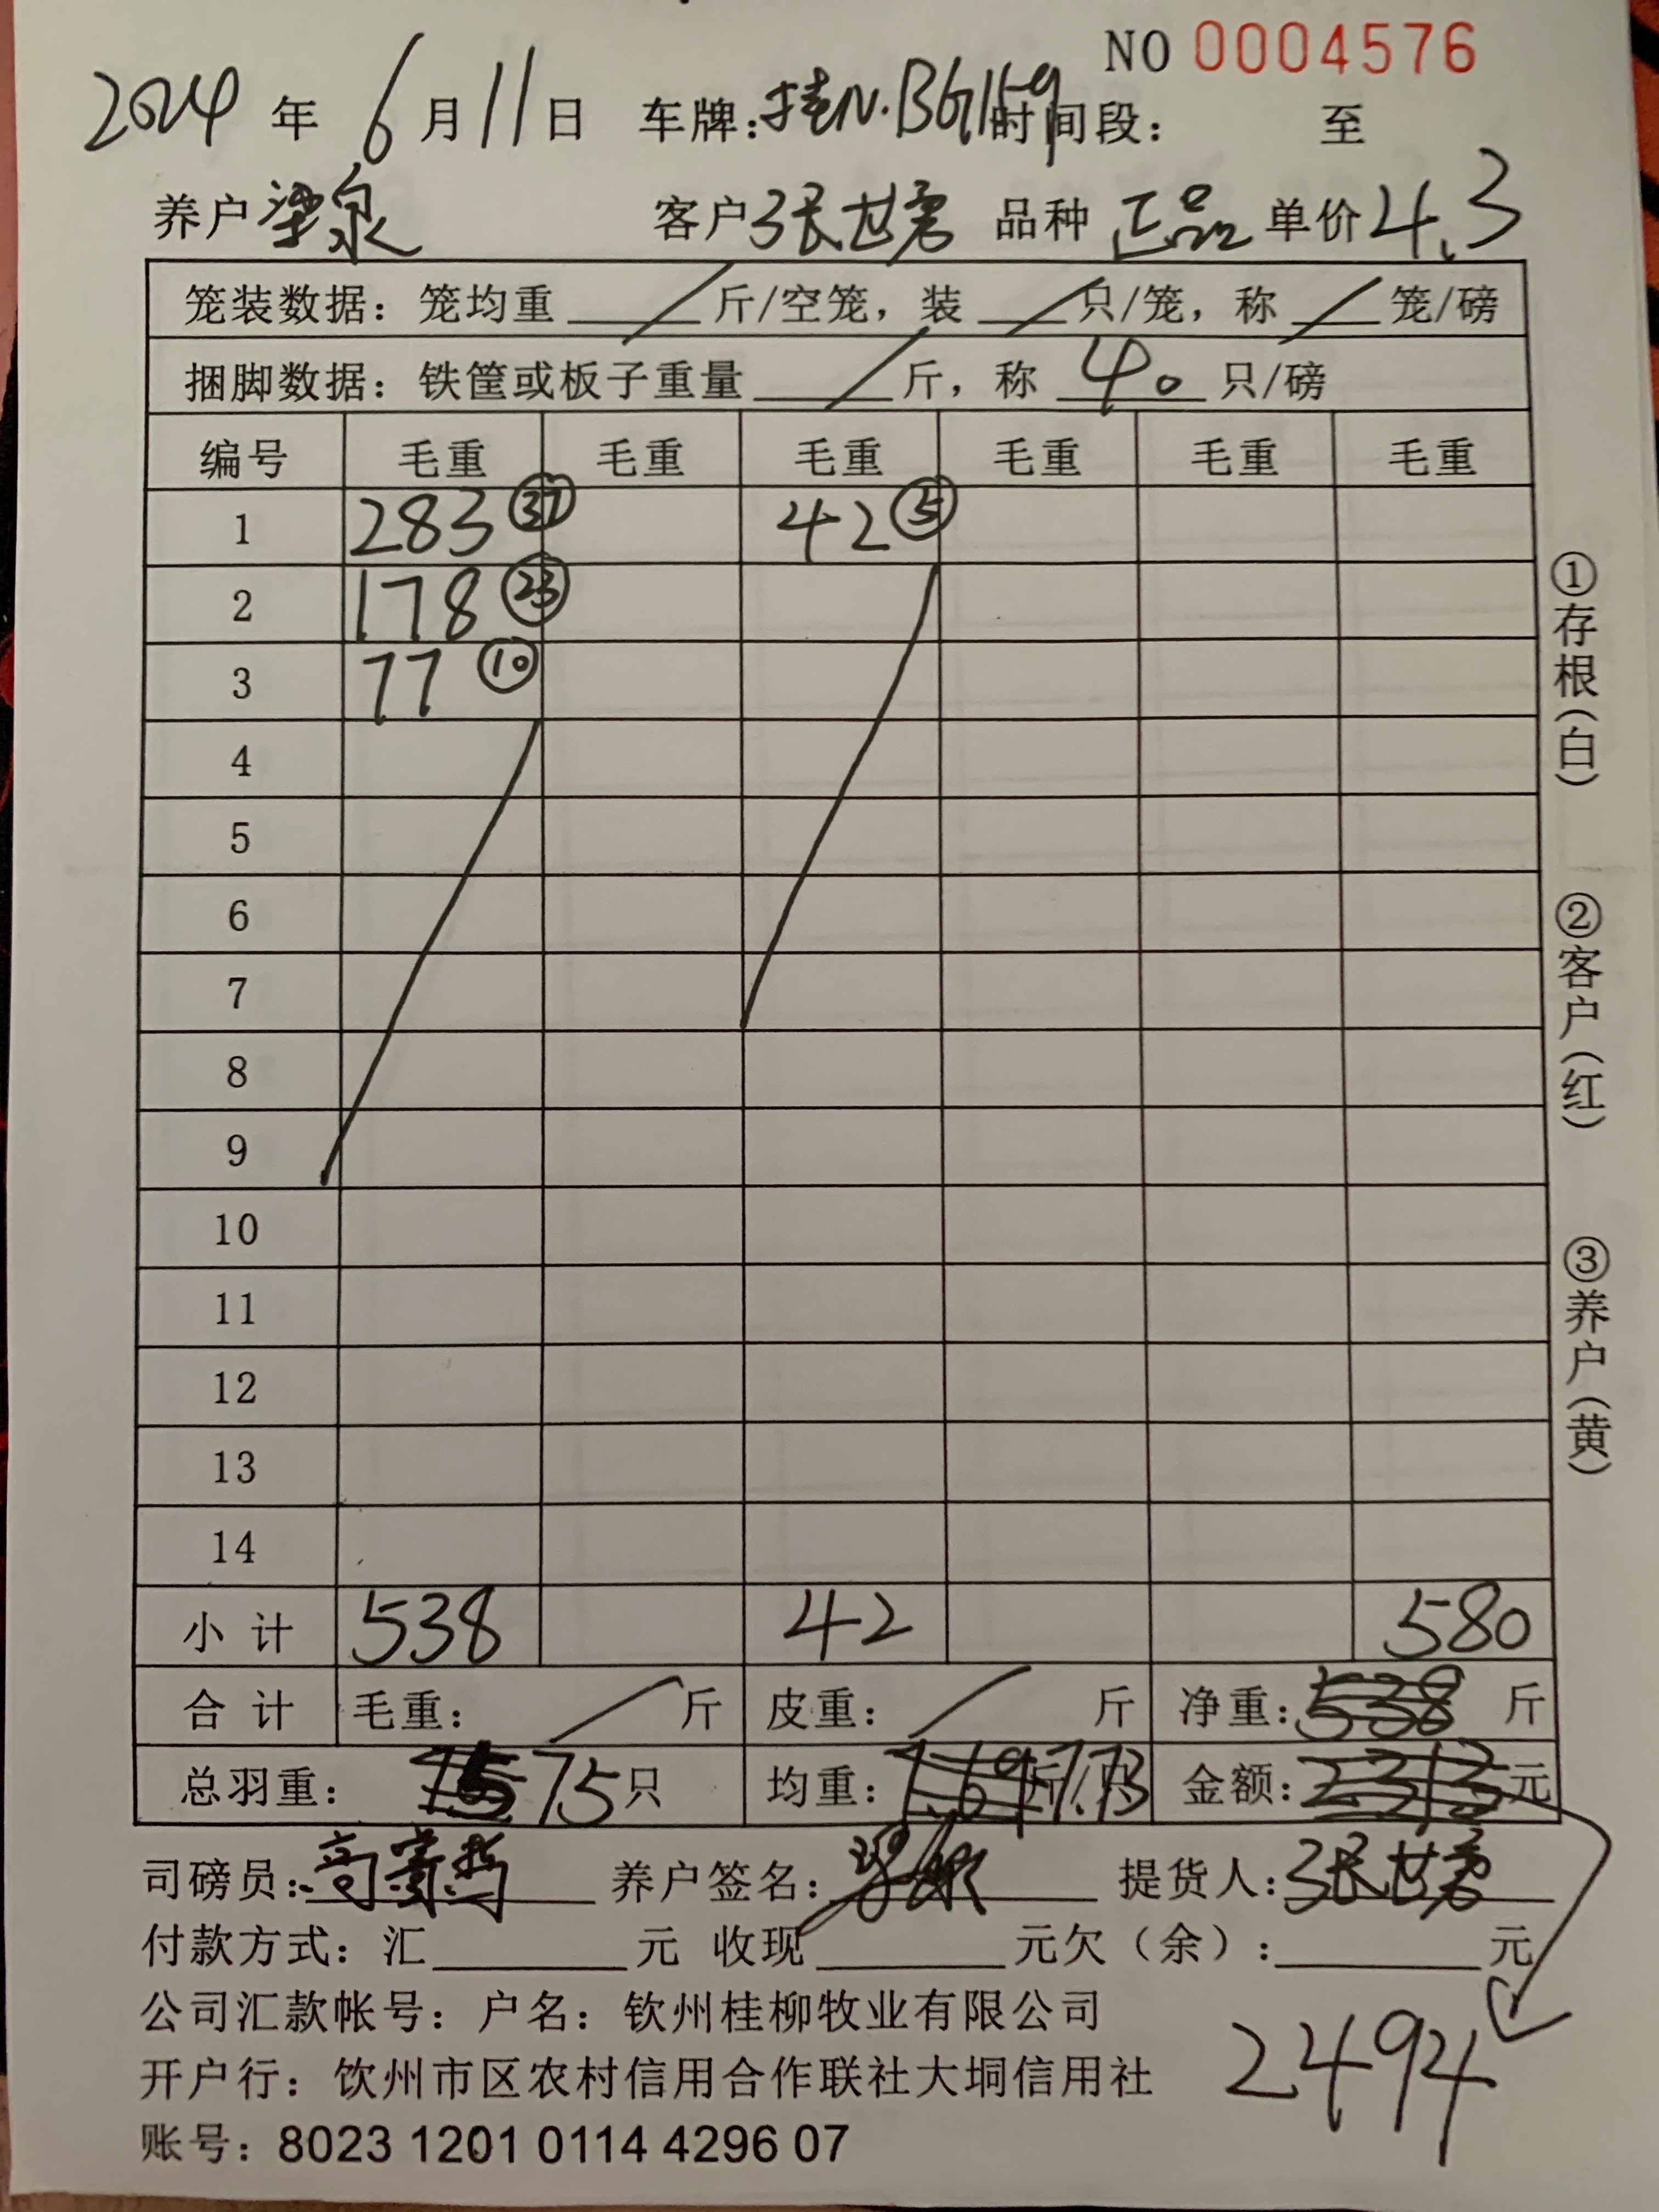 NO 0004576
2024 年 6 月 11 日 车牌: 桂N.BG1159 时间段: 至
养户 梁泉 客户 张世勇 品种 正品 单价 4.3
笼装数据: 笼均重 / 斤/空笼, 装 / 只/笼, 称 / 笼/磅
捆脚数据: 铁筐或板子重量 / 斤, 称 40 只/磅
编号 毛重 毛重 毛重 毛重 毛重 毛重
1 283 37 42 5
2 178 23
3 77 10
4
5
6
7
8
9
10
11
12
13
14
小计 538 42 580
合计 毛重: / 斤 皮重: / 斤 净重: 538 斤
总羽重: 75 只 均重: 7.69 斤 7.73 金额: 2313 元
司磅员: 养户签名: 提货人: 张世勇
付款方式: 汇 元 收现 元欠(余): 元
公司汇款帐号: 户名: 钦州桂柳牧业有限公司
2494
开户行: 钦州市区农村信用合作联社大垌信用社
账号: 8023 1201 0114 4296 07
①存根(白)
②客户(红)
③养户(黄)